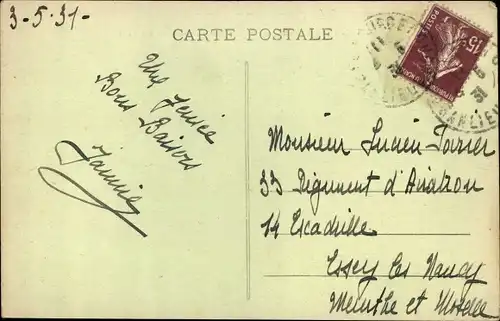 3-5-31-
CARTE POSTALE
15c
Une Pensée
Bons Baisers
Jannie
Monsieur Lucien
33 Régiment d'Aviation
14 Escadrille
Essey les Nancy
Meurthe et Moselle
CHARLIEU